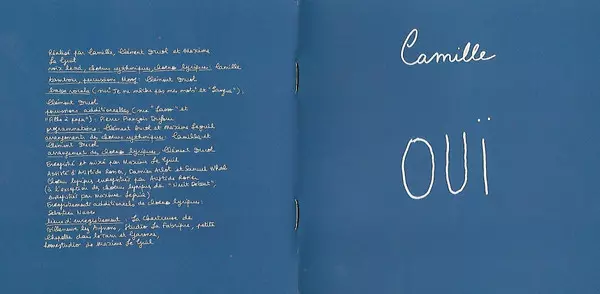 Réalisé par Camille, Clément Ducol et Maxime
Le Guil
voix lead, chœurs rythmiques, chœurs lyriques : Camille
tambours, percussions, Moog : Clément Ducol
basse vocale (sur "Je ne mâche pas mes mots" et "Langue") :
Clément Ducol
percussions additionnelles (sur "Lasso" et
"Fille à papa") : Pierre-François Dufour
programmations : Clément Ducol et Maxime Leguil
arrangements des chœurs rythmiques : Camille et
Clément Ducol
arrangement des chœurs lyriques : Clément Ducol
Enregistré et mixé par Maxime Le Guil
Assisté d'Aristide Rones, Damien Arlot et Samuel Wholl
Chœurs lyriques enregistrés par Aristide Rones
(à l'exception des chœurs lyriques de "Nuit Debout",
enregistrés par Maxime Leguil)
Enregistrements additionnels de chœurs lyriques :
Sébastien
lieux d'enregistrement : La Chartreuse de
Villeneuve lez Avignon, Studio La Fabrique, petite
Chapelle dans le Tarn et Garonne,
homestudio de Maxime Le Guil
Camille
OUÏ